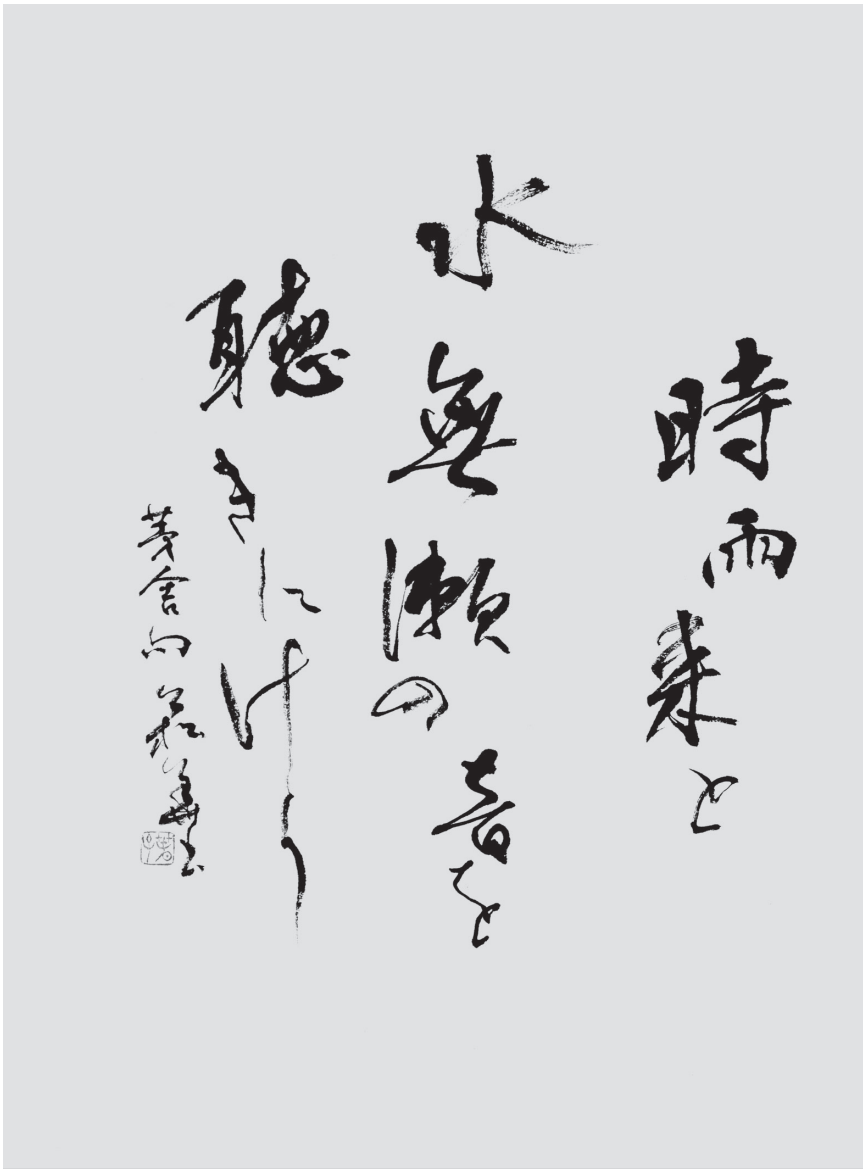 時雨来と
水無瀬の音を
聴きにけり
茅舎句